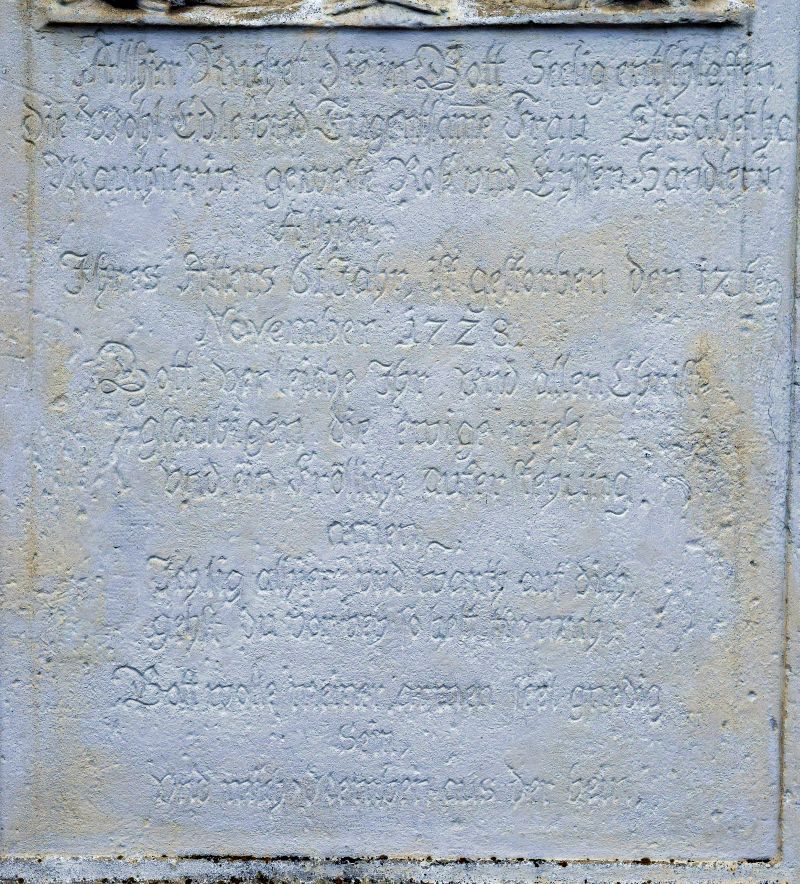 Allhier Ruehet die in Gott Seelig entschlaffen,
die Wohl Edle und Tugentsame Frau Elisabetha
geweste Roß und Eyssen Handlerin
Alhier,
Ihres Alters 61 Jahr, ist gestorben den 12te
November 1728.
Gott verleiche Ihr, und allen Christ
glaubigen die ewige
und ein Fröliche aufer stehung,
amen
Ich lig alhier und wart auf dich,
gehst du vor bey so bett
Gott wolle meiner armen seel gnedig
sein,
und mich nemben aus der bein,